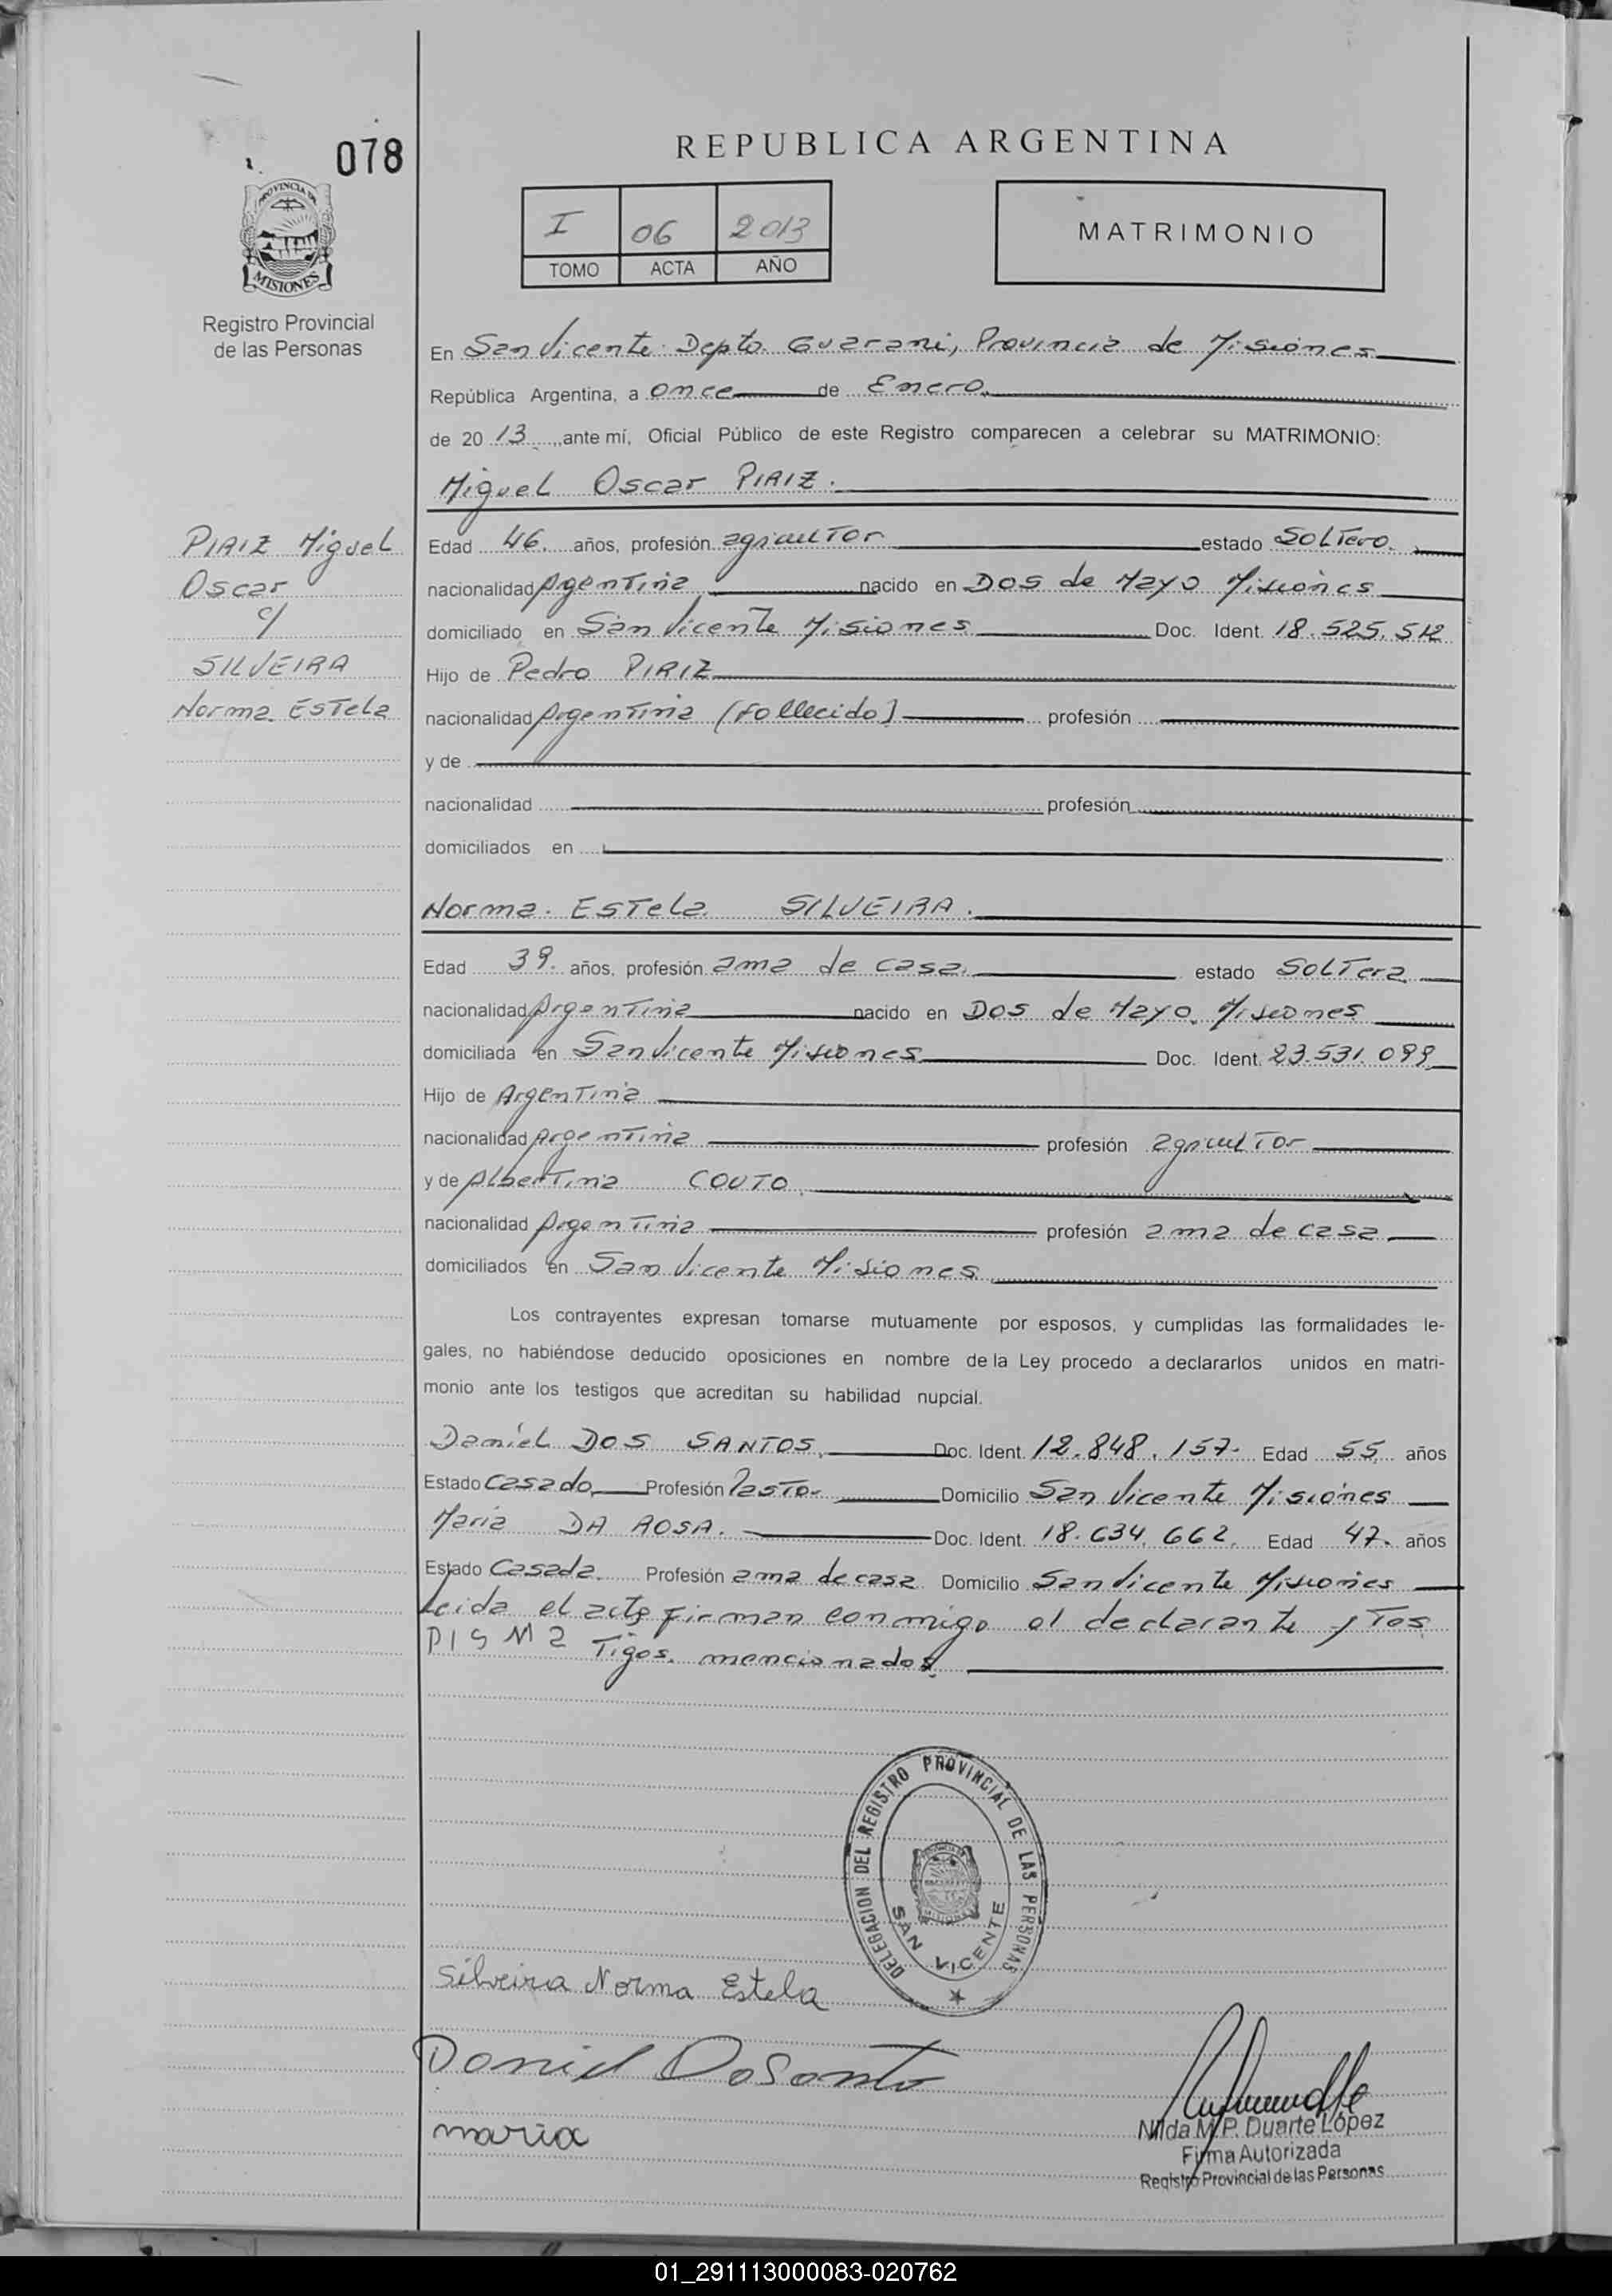 078
REPUBLICA ARGENTINA
I 06 2013
TOMO ACTA AÑO
MATRIMONIO
PROVINCIA DE
MISIONES
Registro Provincial
de las Personas
En San Vicente Depto. Guarani, Provincia de Misiones
República Argentina, a once de Enero
de 20 13 ,ante mí, Oficial Público de este Registro comparecen a celebrar su MATRIMONIO:
Miguel Oscar PIRIZ.
PIRIZ Miguel
Oscar
c/
SILVEIRA
Norma Estela
Edad 46. años, profesión agricultor estado Soltero.
nacionalidad Argentina nacido en Dos de Mayo Misiones
domiciliado en San Vicente Misiones Doc. Ident. 18.525.512
Hijo de Pedro PIRIZ
nacionalidad Argentina (Fallecido) profesión
y de
nacionalidad profesión
domiciliados en
Norma. Estela SILVEIRA.
Edad 39. años, profesión ama de casa. estado Soltera
nacionalidad Argentina nacido en Dos de Mayo Misiones
domiciliada en San Vicente Misiones Doc. Ident. 23.531.099
Hijo de Argentina
nacionalidad Argentina profesión agricultor
y de Albertina COUTO
nacionalidad Argentina profesión ama de casa
domiciliados en San Vicente Misiones
Los contrayentes expresan tomarse mutuamente por esposos, y cumplidas las formalidades le-
gales, no habiéndose deducido oposiciones en nombre de la Ley procedo a declararlos unidos en matri-
monio ante los testigos que acreditan su habilidad nupcial.
Daniel DOS SANTOS. Doc. Ident. 12.848.157. Edad 55 años
Estado Casado Profesión Pastor Domicilio San Vicente Misiones
Maria DA ROSA. Doc. Ident. 18.634.662. Edad 47. años
Estado Casada. Profesión ama de casa Domicilio San Vicente Misiones
Leida el acta firman conmigo el declarante y Tes
Tigos. mencionados
DELEGACION DEL REGISTRO PROVINCIAL DE LAS PERSONAS
SAN VICENTE
Silveira Norma Estela
Daniel DoSanto
maria
Nilda M.P. Duarte López
Firma Autorizada
Registro Provincial de las Personas
01_291113000083-020762